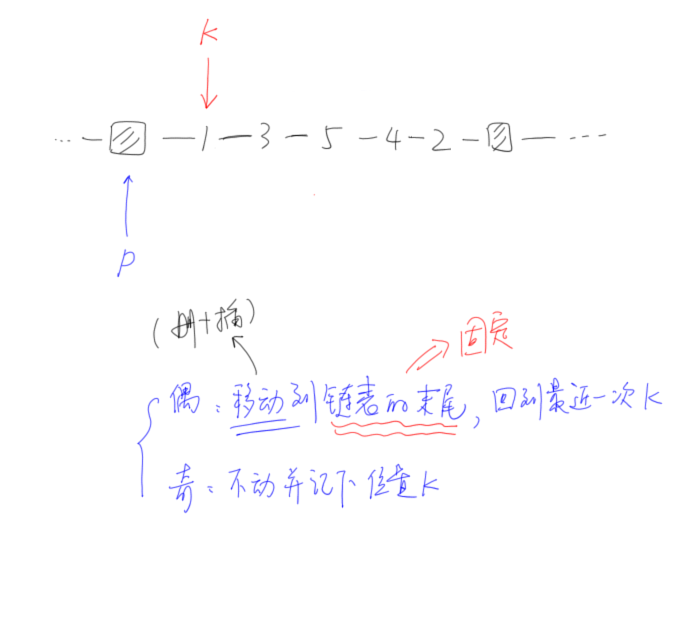 K
... — 1 — 3 — 5 — 4 — 2 — — ...
P
(删+插)
固定
偶：移动到链表的末尾，回到最近一次K
奇：不动并记下位置K